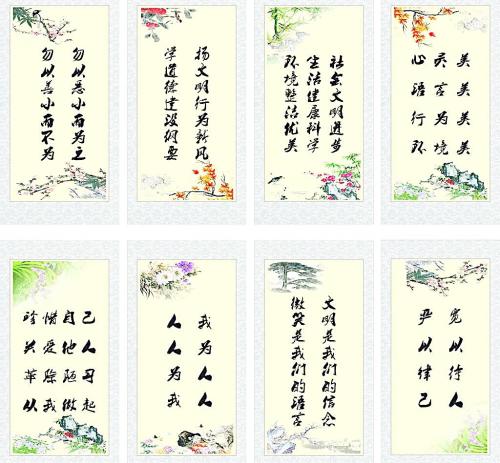 勿以恶小而为之
勿以善小而不为
扬文明行为新风
学道德建设纲要
社会文明進步
生活健康科学
环境整洁优美
心灵美
语言美
行为美
环境美
珍惜自己
关爱他人
革除陋习
从我做起
我为人人
人人为我
文明是我们的信念
微笑是我们的语言
宽以待人
严以律己